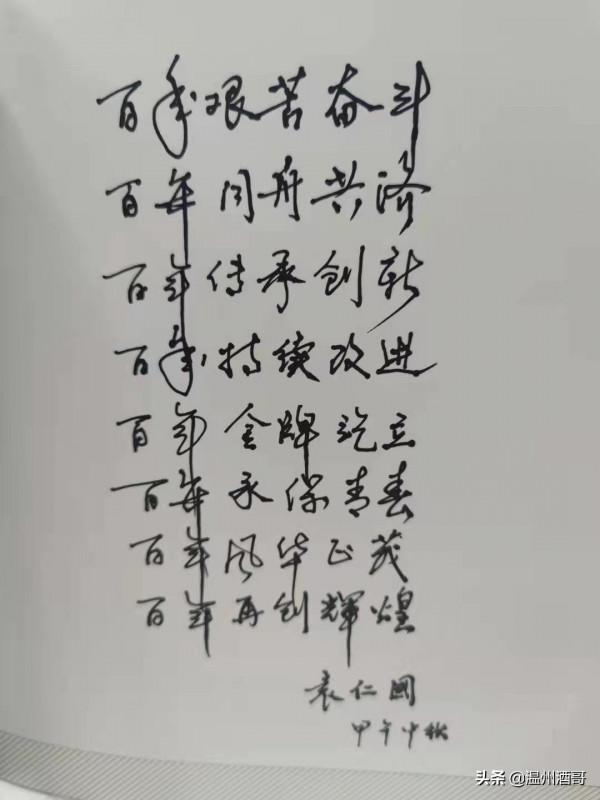 百年艰苦奋斗
百年同舟共济
百年传承创新
百年持续改进
百年金牌屹立
百年永保青春
百年风华正茂
百年再创輝煌
袁仁國
甲午中秋
头条 @温州酒哥